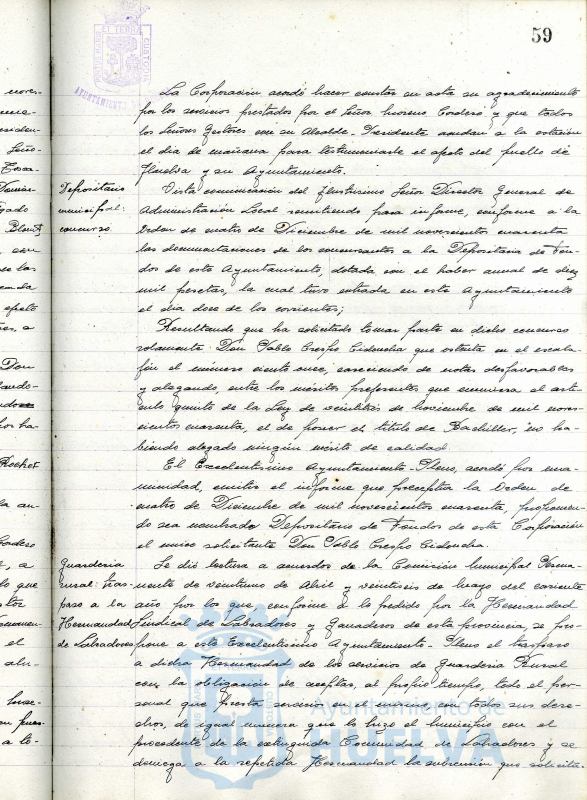 59
AYUNTAMIENTO
La Corporación acordó hacer constar en acta su agradecimiento
por los servicios prestados por el Señor Moreno Cordero y que todos
los Señores Gestores con su Alcalde-Presidente acudan a la estación
el día de mañana para testimoniarle el afecto del pueblo de
Huelva y su Ayuntamiento.
Depositario
municipal:
concurso.
Vista comunicación del Ilustrísimo Señor Director General de
Administración Local remitiendo para informe, conforme a la
Orden de cuatro de Diciembre de mil novecientos cuarenta
las documentaciones de los concursantes a la Depositaría de Fon-
dos de este Ayuntamiento, dotada con el haber anual de diez
mil pesetas, la cual tuvo entrada en este Ayuntamiento
el día doce de los corrientes;
Resultando que ha solicitado tomar parte en dicho concurso
solamente Don Pablo Crespo Cidoncha que ostenta en el escala-
fón el número ciento once, careciendo de notas desfavorables
y alegando, entre los méritos preferentes que enumera el artí-
culo quinto de la Ley de veintitrés de noviembre de mil nove-
cientos cuarenta, el de poseer el título de Bachiller, no ha-
biendo alegado ningún mérito de calidad.
El Excelentísimo Ayuntamiento-Pleno, acordó por una-
nimidad, emitir el informe que preceptúa la Orden de
cuatro de Diciembre de mil novecientos cuarenta, proponien-
do sea nombrado Depositario de Fondos de esta Corporación
el único solicitante Don Pablo Crespo Cidoncha.
Guardería
rural: tras-
paso a la
Hermandad
de Labradores
Se dió lectura a acuerdos de la Comisión Municipal Perma-
nente de veintiuno de Abril y veintiseis de Mayo del corriente
año por los que, conforme a lo pedido por la Hermandad
Sindical de Labradores y Ganaderos de esta provincia, se pro-
pone a este Excelentísimo Ayuntamiento-Pleno el traspaso
a dicha Hermandad de los servicios de Guardería Rural
con la obligación de aceptar, al propio tiempo, todo el per-
sonal que presta servicio en la misma con todos sus dere-
chos, de igual manera que lo hizo el municipio con el
procedente de la extinguida Comunidad de Labradores y se
deniega a la repetida Hermandad la subvención que solicita.
Ayuntamiento de
HUELVA